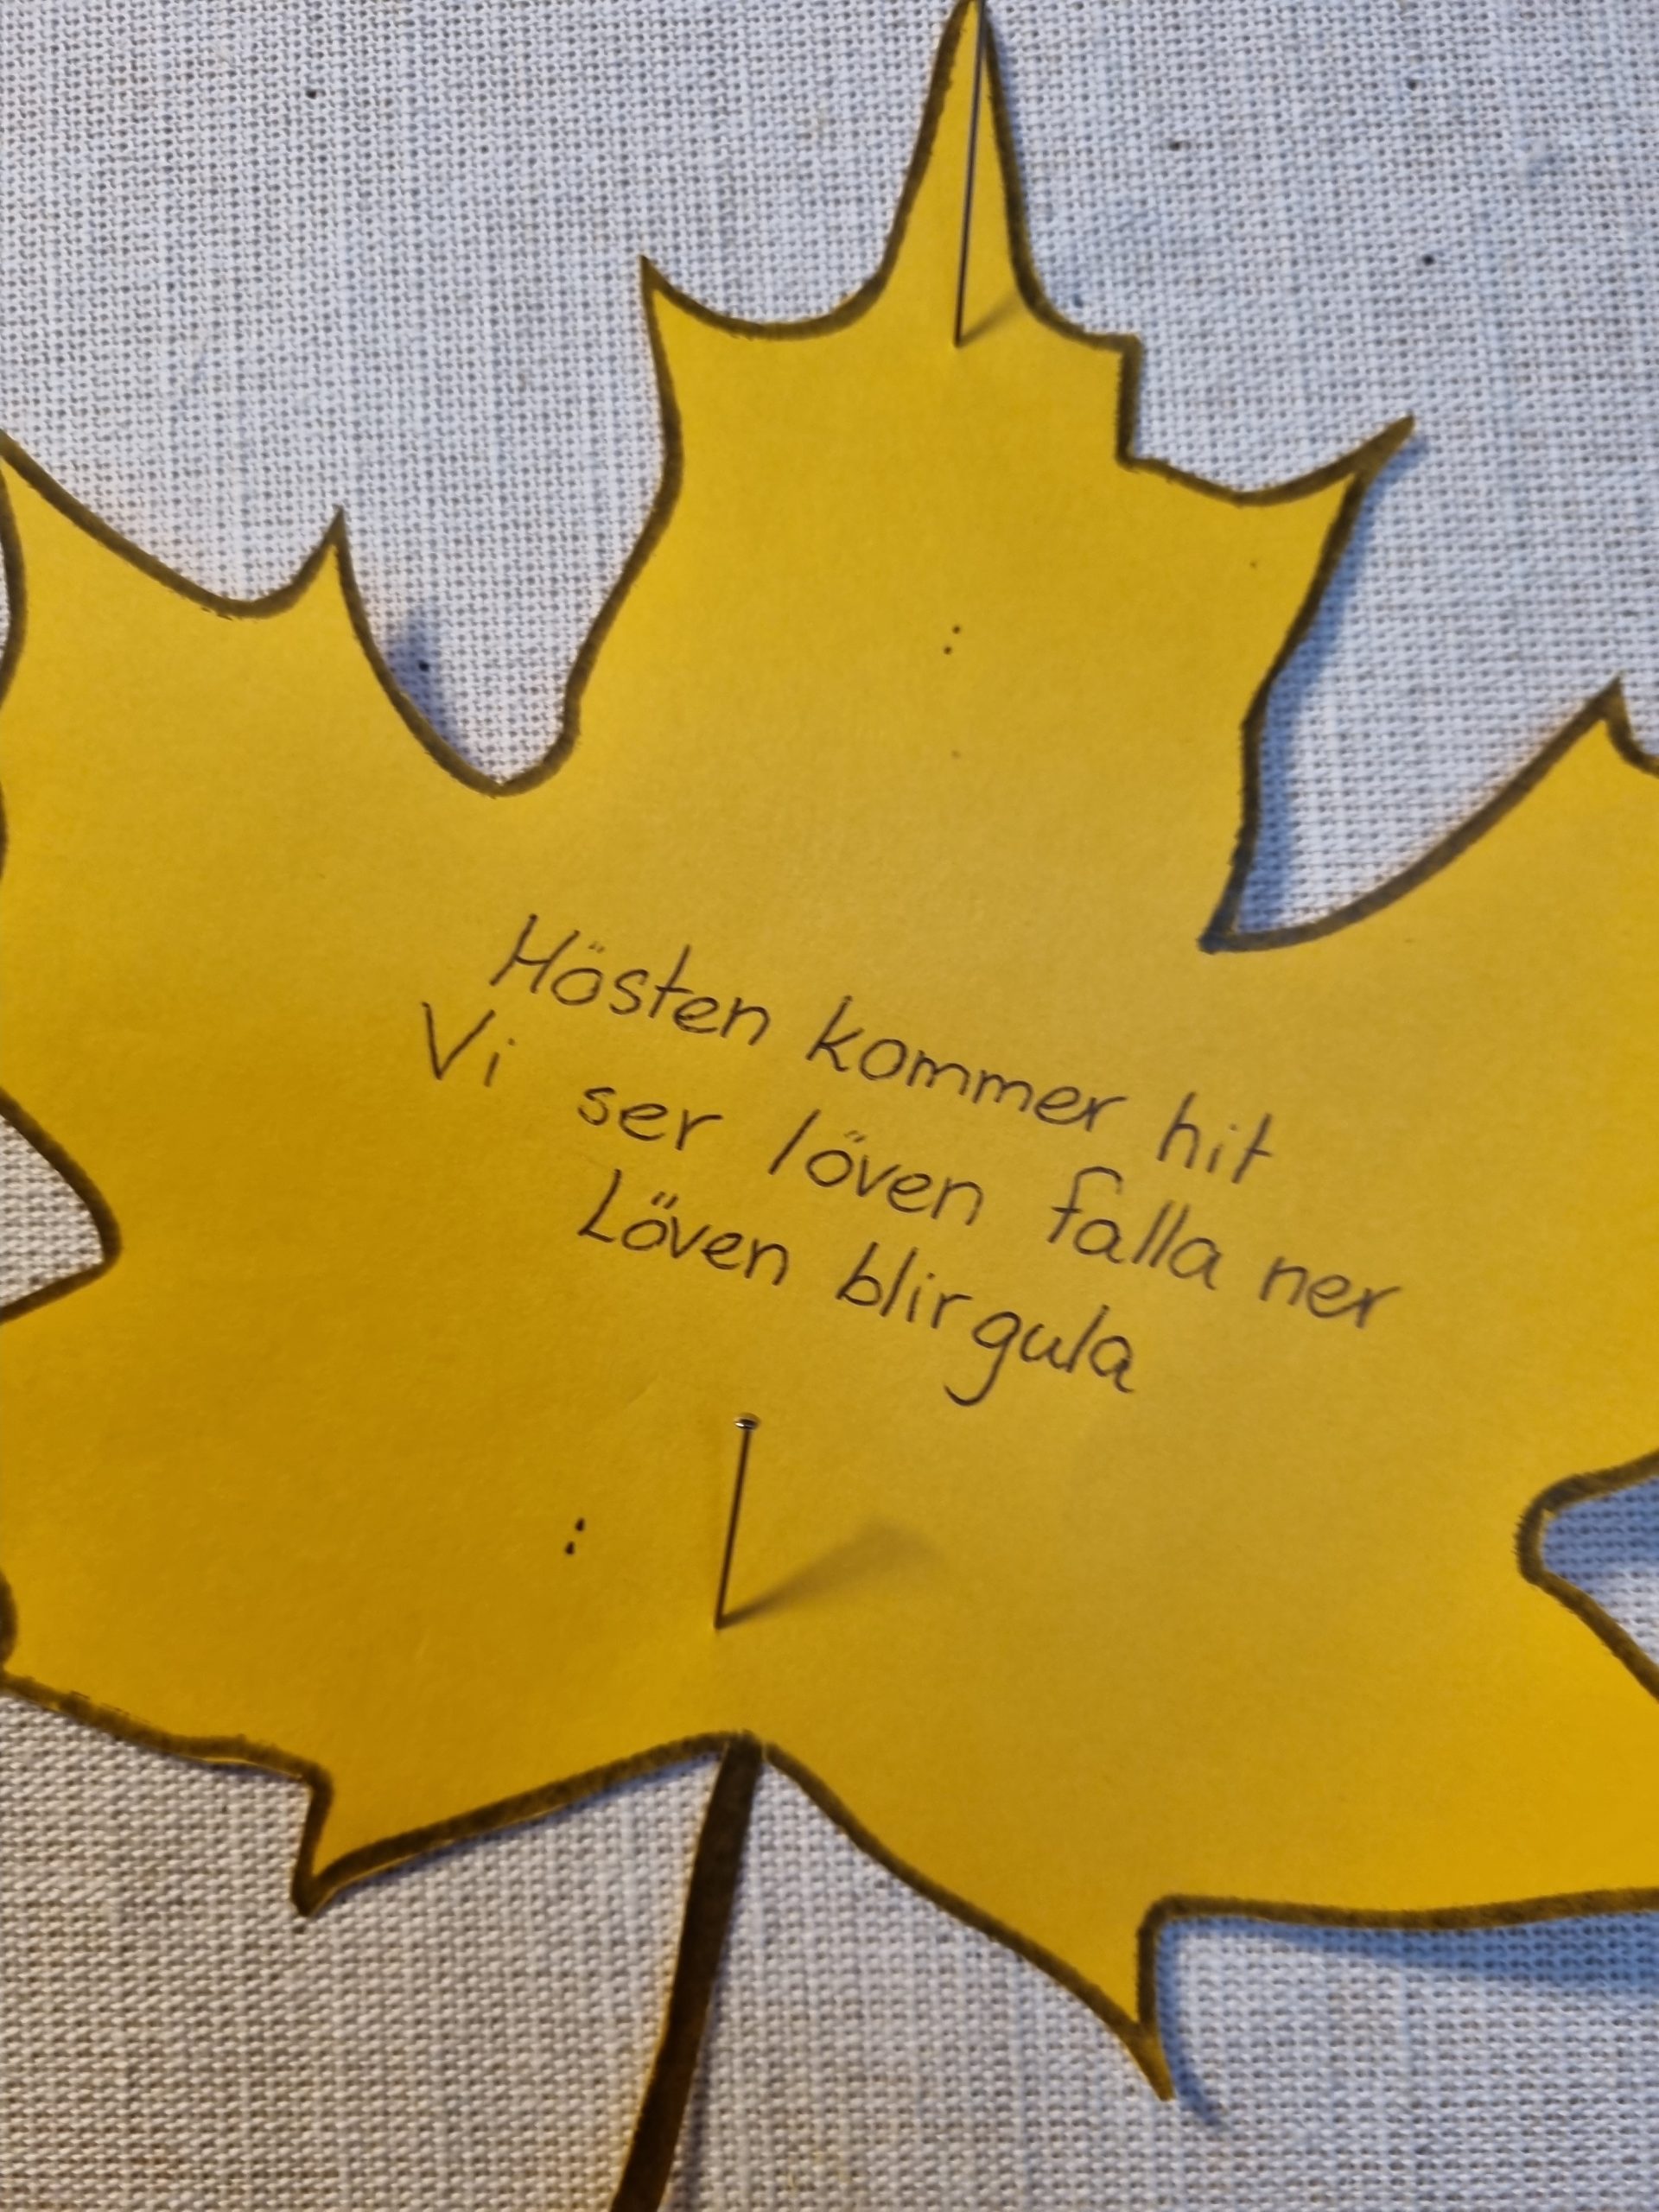 Hösten kommer hit
Vi ser löven falla ner
Löven blir gula